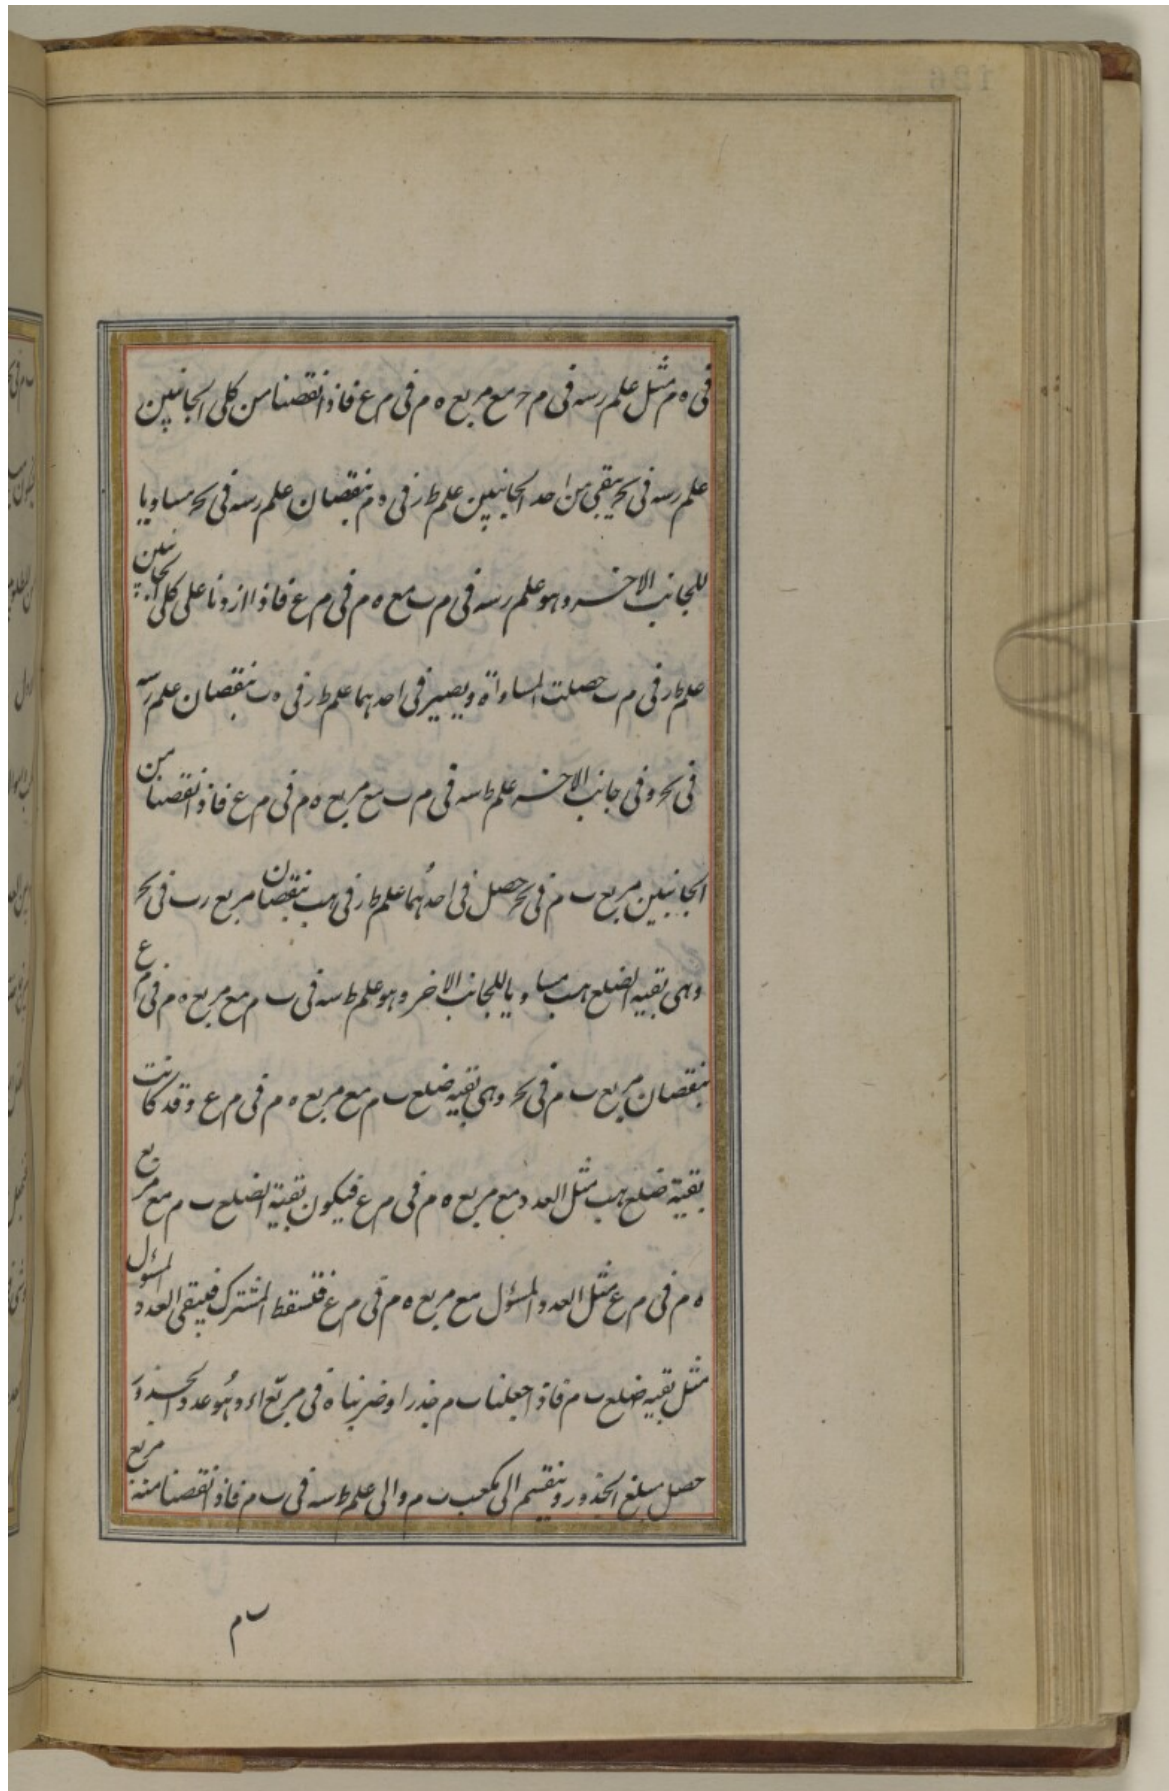 فى ه م مثل علم رسه فى م ح مع مربع ه م فى م ع فاذا نقصنا من كلى الجانبين
علم رسه فى بحر يبقى من احد الجانبين علم ط ر فى ه م بنقصان علم رسه فى بحر مساويا
للجانب الاخر وهو علم رسه فى م ب مع ه م فى م ع فاذا ازدنا على كلى الجانبين
علم ط ر فى م ب حصلت المساواة ويصير فى احدهما علم ط ر فى ه ب بنقصان علم رسه
فى بحر وفى جانب الاخر علم ط سه فى م ب مع مربع ه م فى م ع فاذا نقصنا من
الجانبين مربع ب م فى بحر حصل فى احدهما علم ط ر فى هب بنقصان مربع رب فى بحر
وهى بقيه الضلع هب مساويا للجانب الاخر وهو علم ط سه فى ب م مع مربع ه م فى م ع
بنقصان مربع ب م فى بحر وهى بقيه ضلع ب م مع مربع ه م فى م ع وقد كانت
بقية ضلع هب مثل العدد مع مربع ه م فى م ع فيكون بقية الضلع ب م مع مربع
ه م فى م ع مثل العدد المسؤل مع مربع ه م فى م ع فنسقط المشترك فيبقى العدد المسؤل
مثل بقيه ضلع ب م فاذا جعلنا ب م جذرا وضربناه فى مربع اء وهو عدد الجذور
حصل مبلغ الجذور وينقسم الى مكعب ب م والى علم ط سه فى ب م فاذا نقصنا منه مربع
ب م